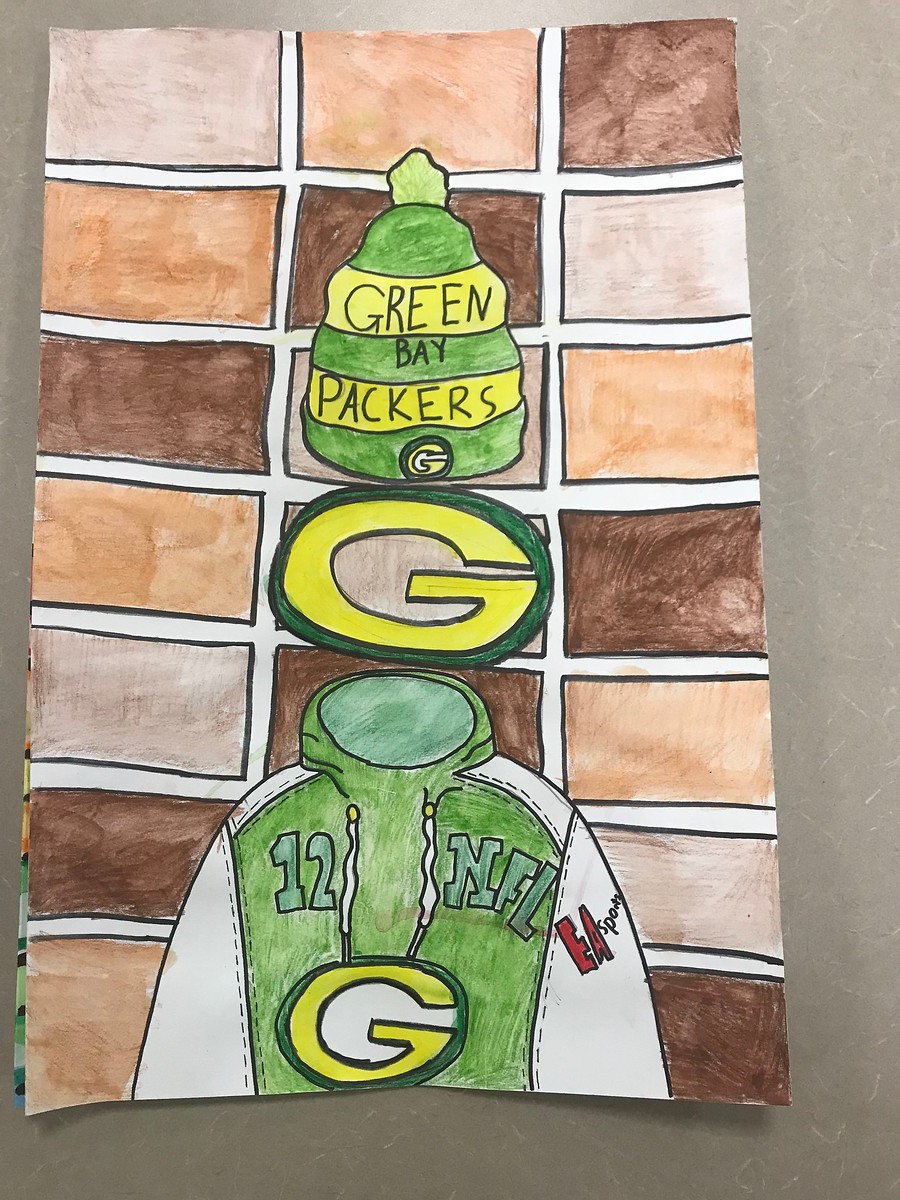 GREEN
BAY
PACKERS
G
G
12 NFL
EA Sports
G